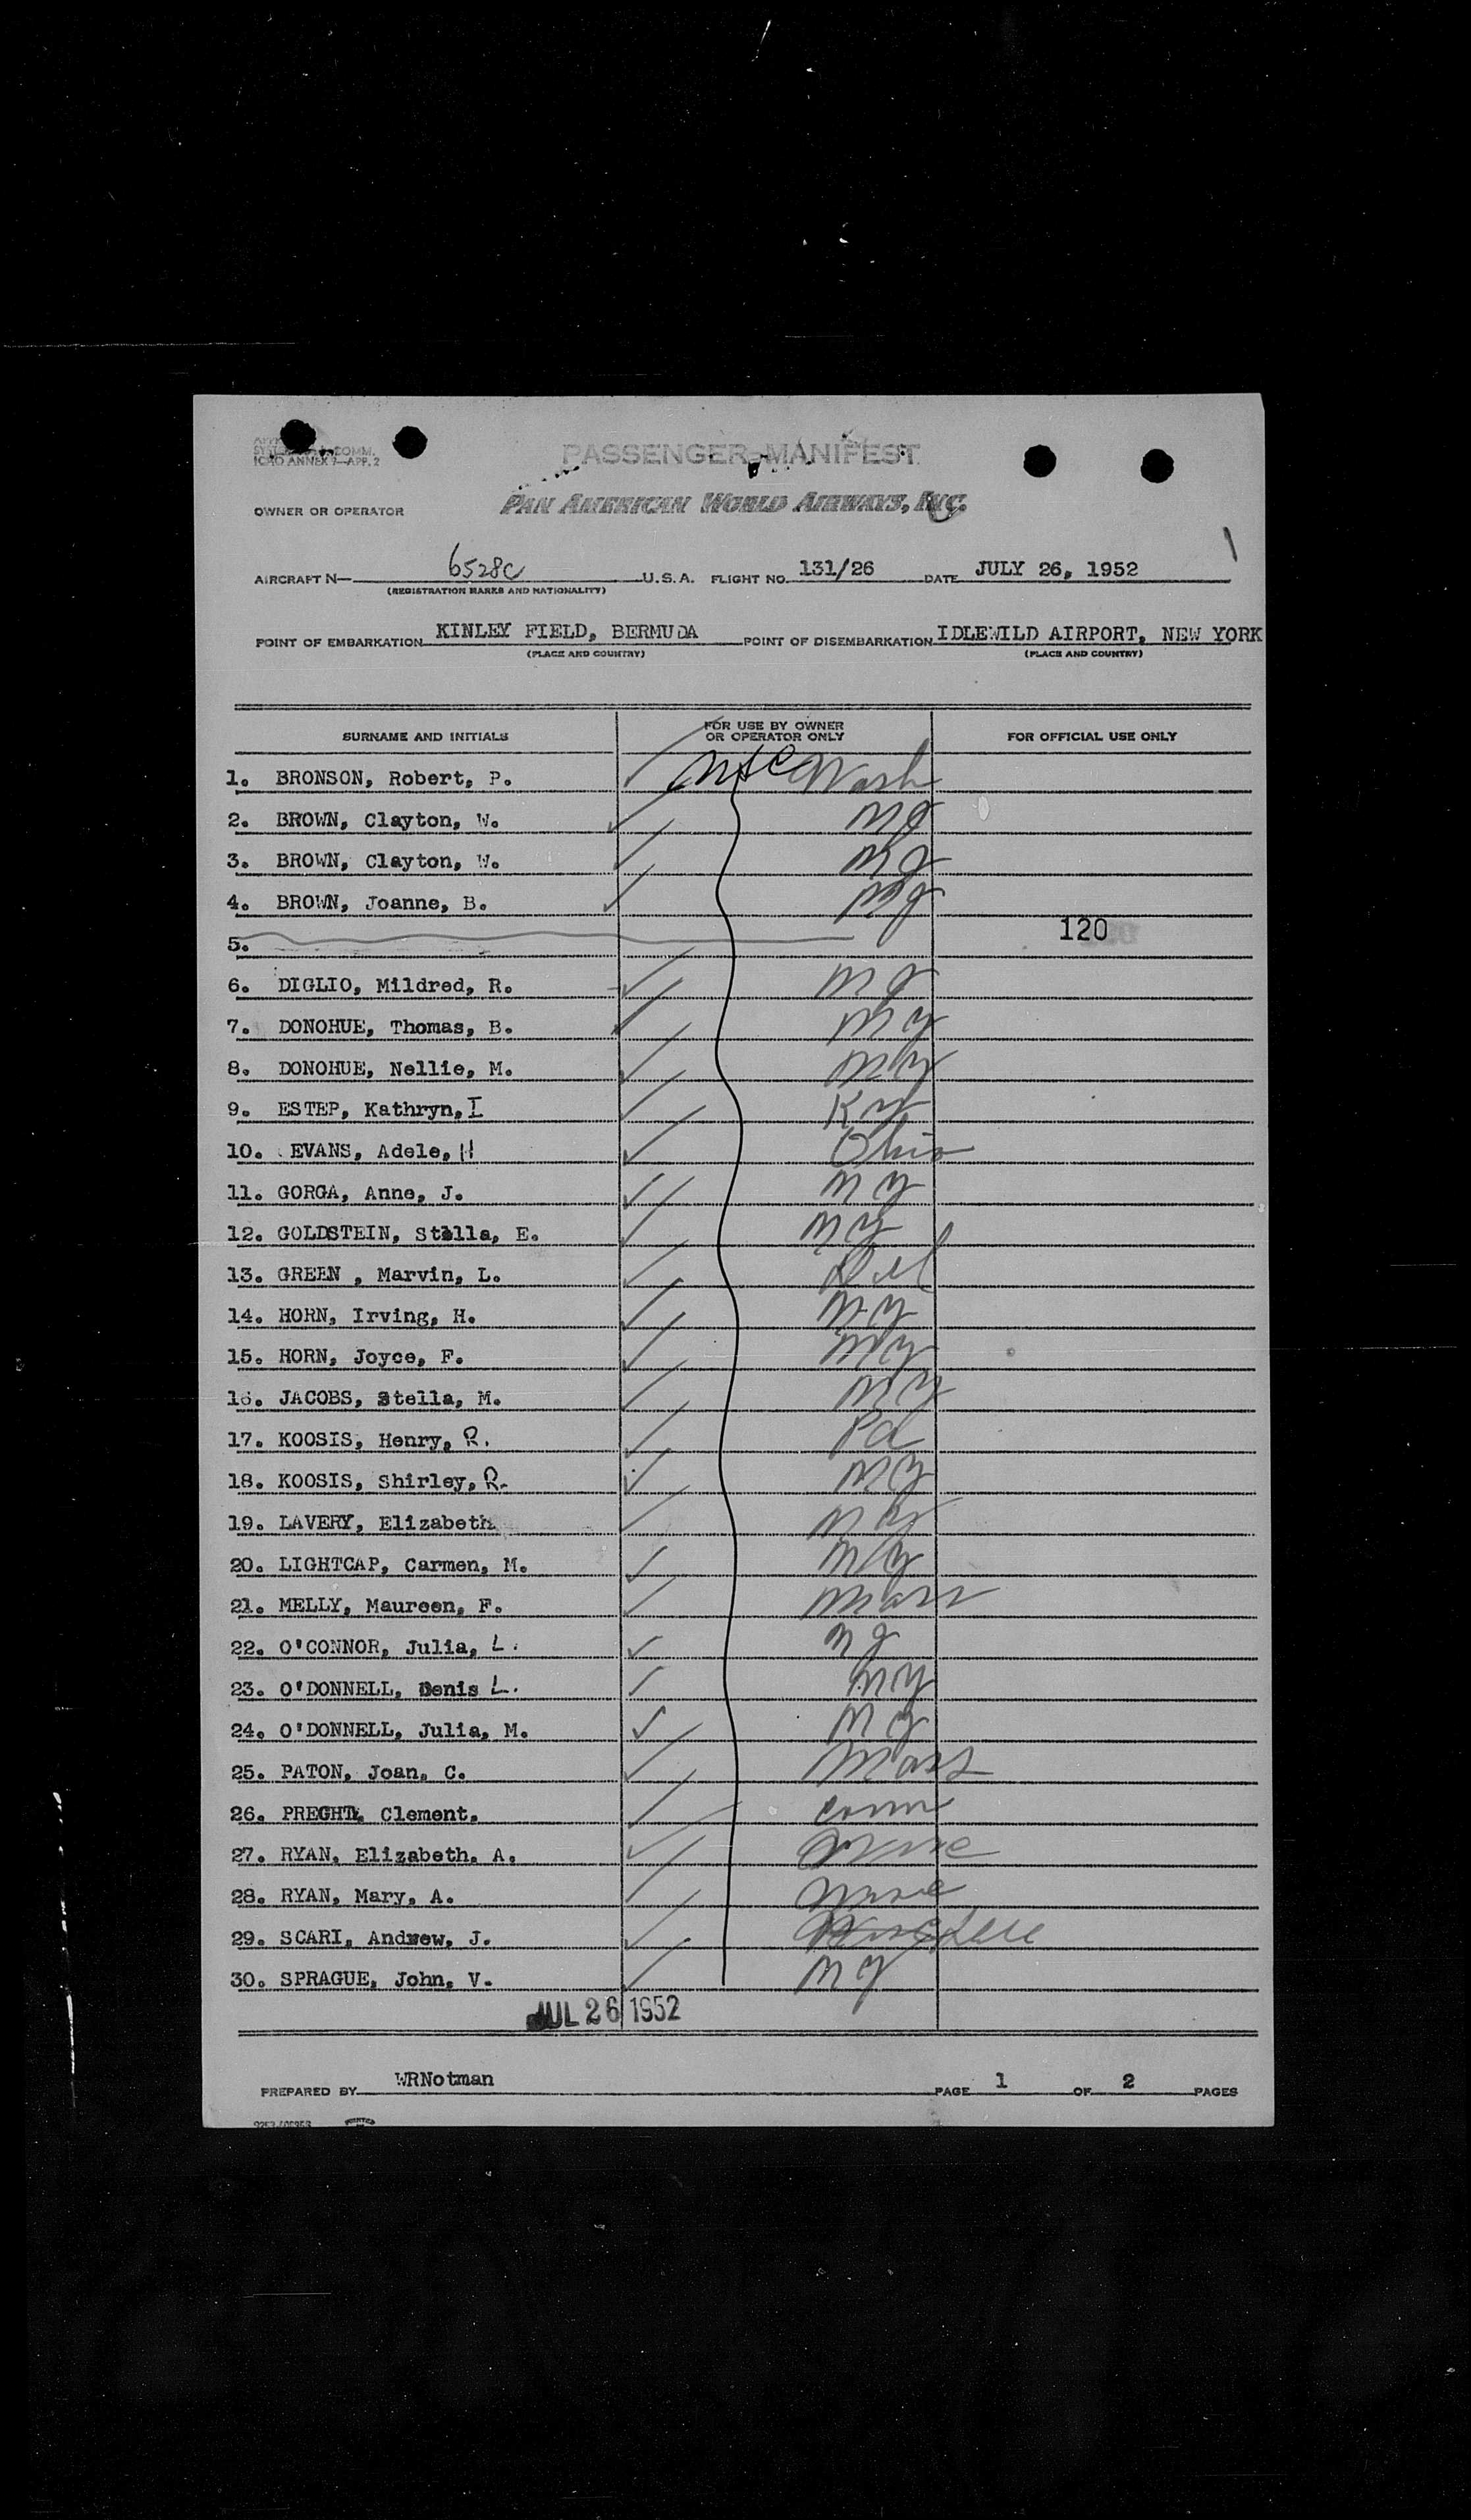 COMM.
ICAO ANNEX 9—APP. 2
PASSENGER MANIFEST
OWNER OR OPERATOR PAN AMERICAN WORLD AIRWAYS, INC.
AIRCRAFT N— 6528C U.S.A. FLIGHT NO. 131/26 DATE JULY 26, 1952
(REGISTRATION MARKS AND NATIONALITY)
POINT OF EMBARKATION KINLEY FIELD, BERMUDA POINT OF DISEMBARKATION IDLEWILD AIRPORT, NEW YORK
(PLACE AND COUNTRY) (PLACE AND COUNTRY)
SURNAME AND INITIALS FOR USE BY OWNER OR OPERATOR ONLY FOR OFFICIAL USE ONLY
1. BRONSON, Robert, P. Wash
2. BROWN, Clayton, W. NJ
3. BROWN, Clayton, W. NJ
4. BROWN, Joanne, B. NJ
5. 120
6. DIGLIO, Mildred, R. NJ
7. DONOHUE, Thomas, B. NY
8. DONOHUE, Nellie, M. NY
9. ESTEP, Kathryn, I Ky
10. EVANS, Adele, H Ohio
11. GORGA, Anne, J. NY
12. GOLDSTEIN, Stella, E. NY
13. GREEN , Marvin, L. Del
14. HORN, Irving, H. NY
15. HORN, Joyce, F. NY
16. JACOBS, Stella, M. NY
17. KOOSIS, Henry, R. Pa
18. KOOSIS, Shirley, R. NY
19. LAVERY, Elizabeth NY
20. LIGHTCAP, Carmen, M. NY
21. MELLY, Maureen, F. Mass
22. O'CONNOR, Julia, L. NJ
23. O'DONNELL, Denis L. NY
24. O'DONNELL, Julia, M. NY
25. PATON, Joan, C. Mass
26. PRECHTL Clement. Conn
27. RYAN, Elizabeth. A.
28. RYAN, Mary, A.
29. SCARI, Andrew, J.
30. SPRAGUE, John, V. NY
JUL 26 1952
PREPARED BY WRNotman PAGE 1 OF 2 PAGES